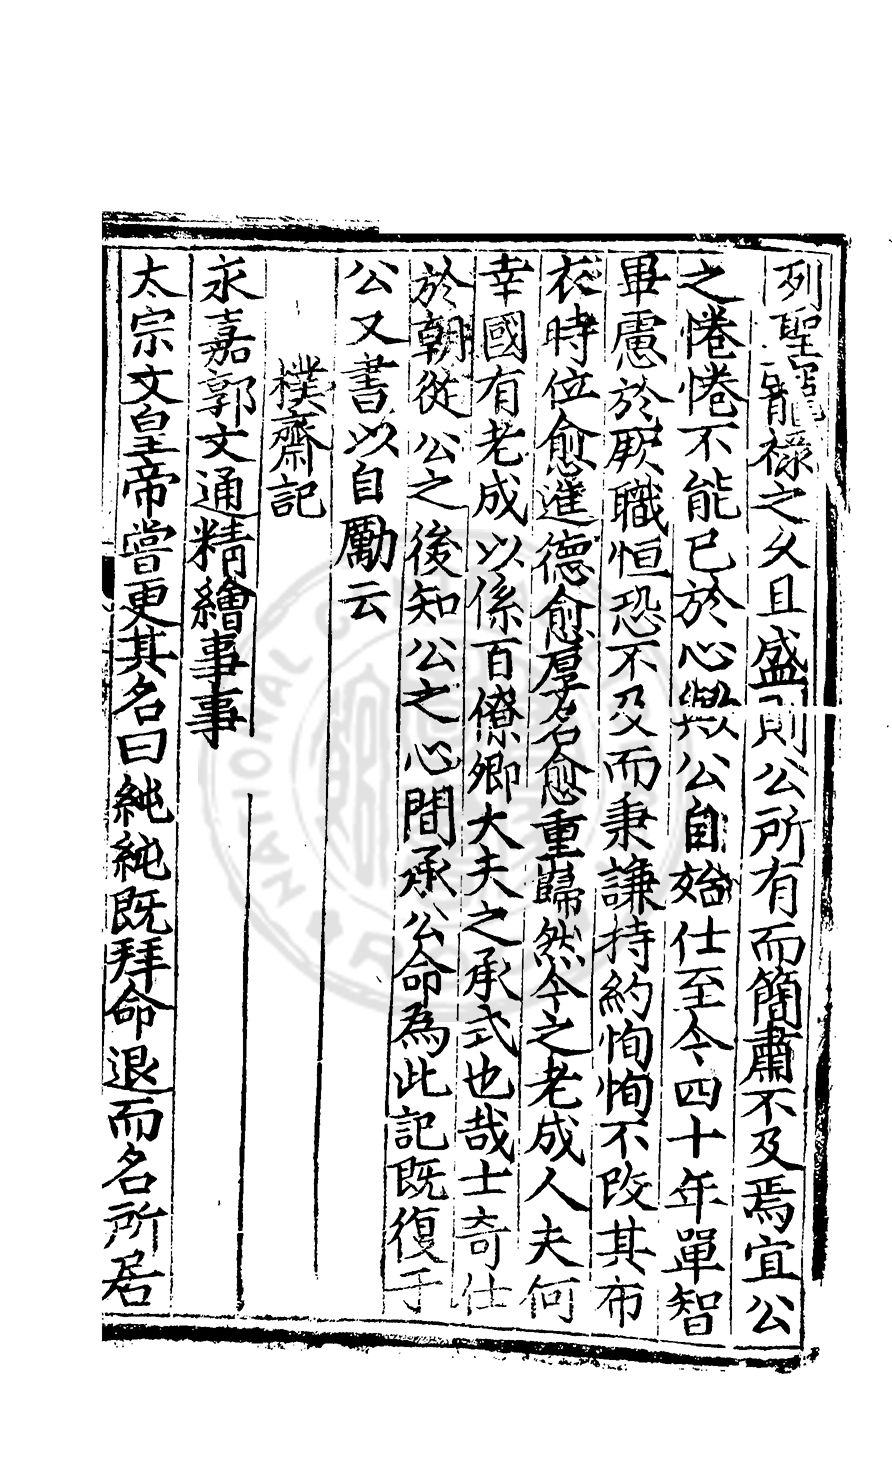 列聖寵祿之久且盛則公所有而簡肅不及焉宜公
之惓惓不能已於心歟公自始仕至今四十年單智
畢慮於厥職恒恐不及而秉謙持約恂恂不改其布
衣時位愈進德愈厚名愈重巋然今之老成人夫何
幸國有老成以係百僚卿大夫之承式也哉士奇仕
於朝從公之後知公之心間承公命為此記既復于
公又書以自勵云
樸齋記
永嘉郭文通精繪事事
太宗文皇帝嘗更其名曰純純既拜命退而名所居